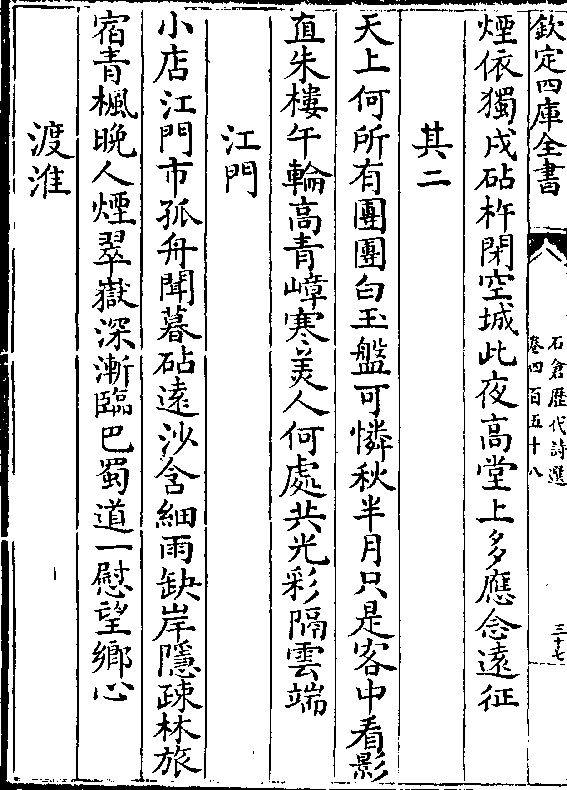 欽定四庫全書
石倉歷代詩選
卷四百五十八
三十七
煙依獨戍砧杵閉空城此夜高堂上多應念遠征
其二
天上何所有團團白玉盤可憐秋半月只是客中看影
直朱樓午輪高青嶂寒美人何處共光彩隔雲端
江門
小店江門市孤舟聞暮砧遠沙含細雨缺岸隱疎林旅
宿青楓晚人煙翠嶽深漸臨巴蜀道一慰望鄉心
渡淮